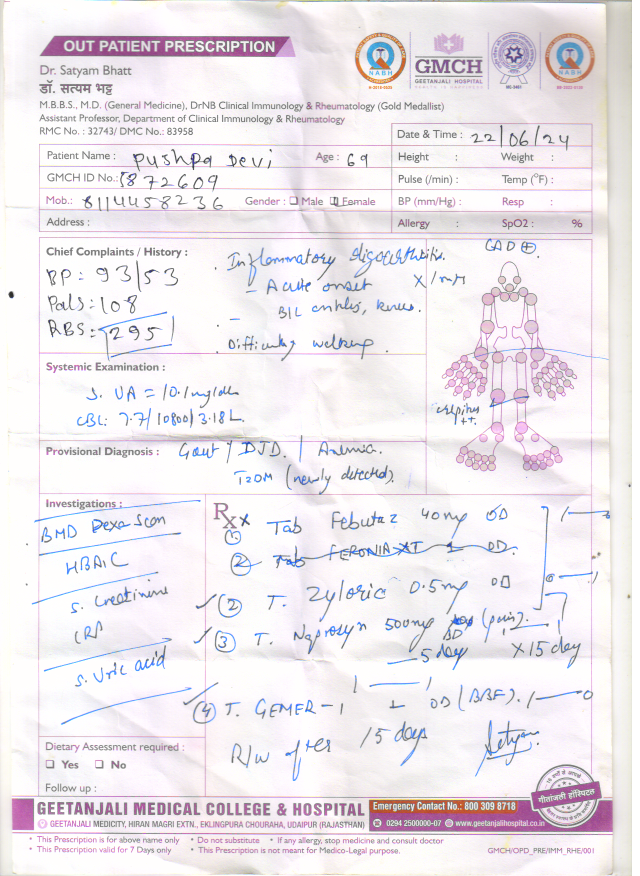 OUT PATIENT PRESCRIPTION
Dr. Satyam Bhatt
डॉ. सत्यम भट्ट
M.B.B.S., M.D. (General Medicine), DrNB Clinical Immunology & Rheumatology (Gold Medallist)
Assistant Professor, Department of Clinical Immunology & Rheumatology
RMC No. : 32743/ DMC No.: 83958
NABH
GMCH
GEETANJALI HOSPITAL
NABH
Date & Time : 22/06/24
Patient Name : Pushpa Devi Age : 69
Height : Weight :
GMCH ID No.: 1872609
Pulse (/min) : Temp (°F) :
Mob.: 8114458236 Gender : Male Female
BP (mm/Hg) : Resp :
Address :
Allergy : SpO2 : %
Chief Complaints / History :
BP: 93/53
Puls: 108
RBS: 295
Inflammatory oligoarthritis.
- Acute onset
B/L ankles, knees.
Difficulty walking.
CAD ⊕
crepitus
++
Systemic Examination :
S. UA = 10.1 mg/dl
CBC: 7.7/10800/3.18 L
Provisional Diagnosis : Gout / DJD. / Anemia.
T2DM (newly detected).
Investigations :
BMD Dexa Scan
HBA1C
S. Creatinine
CRP
S. Uric acid
Rx
① Tab Febutaz 40mg OD
② Tab FERONIA XT 1 OD.
② T. Zyloric 0.5mg OD
③ T. Naprosyn 500mg BD (pain).
5 day X 15 day
④ T. GEMER-1 OD (BBF).
R/w after 15 days
Dietary Assessment required :
Yes No
Follow up :
गीतांजली हॉस्पिटल
GEETANJALI MEDICAL COLLEGE & HOSPITAL
Emergency Contact No.: 800 309 8718
GEETANJALI MEDICITY, HIRAN MAGRI EXTN., EKLINGPURA CHOURAHA, UDAIPUR (RAJASTHAN)
0294 2500000-07 www.geetanjalihospital.co.in
• This Prescription is for above name only • Do not substitute • If any allergy, stop medicine and consult doctor
• This Prescription valid for 7 Days only • This Prescription is not meant for Medico-Legal purpose.
GMCH/OPD_PRE/IMM_RHE/001